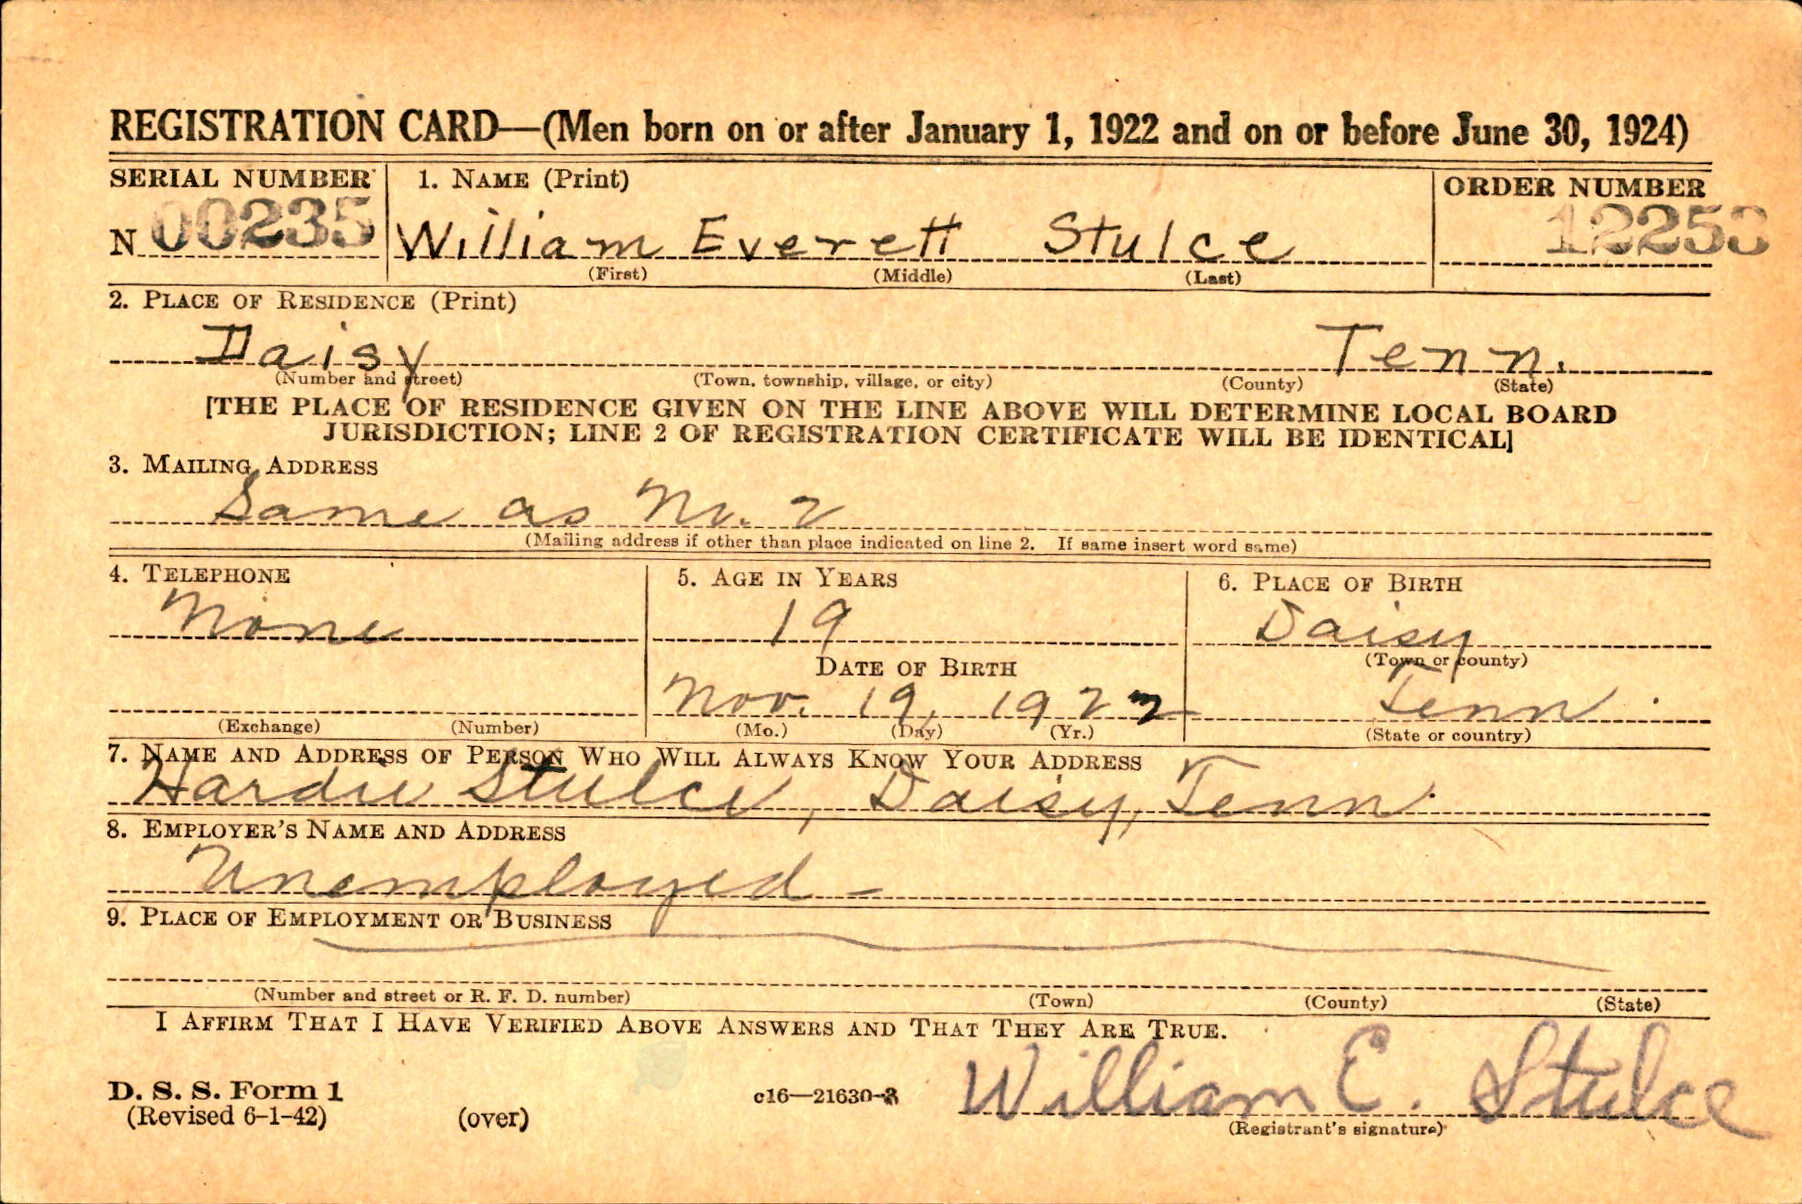 REGISTRATION CARD—(Men born on or after January 1, 1922 and on or before June 30, 1924)
SERIAL NUMBER 1. NAME (Print) ORDER NUMBER
N 00235 William Everett Stulce 12253
(First) (Middle) (Last)
2. PLACE OF RESIDENCE (Print)
Daisy Tenn.
(Number and street) (Town, township, village, or city) (County) (State)
[THE PLACE OF RESIDENCE GIVEN ON THE LINE ABOVE WILL DETERMINE LOCAL BOARD
JURISDICTION; LINE 2 OF REGISTRATION CERTIFICATE WILL BE IDENTICAL]
3. MAILING ADDRESS
Same as No. 2
(Mailing address if other than place indicated on line 2. If same insert word same)
4. TELEPHONE 5. AGE IN YEARS 6. PLACE OF BIRTH
None 19 Daisy
DATE OF BIRTH (Town or county)
Nov. 19, 1922 Tenn.
(Exchange) (Number) (Mo.) (Day) (Yr.) (State or country)
7. NAME AND ADDRESS OF PERSON WHO WILL ALWAYS KNOW YOUR ADDRESS
Hardie Stulce, Daisy, Tenn.
8. EMPLOYER'S NAME AND ADDRESS
Unemployed –
9. PLACE OF EMPLOYMENT OR BUSINESS
(Number and street or R. F. D. number) (Town) (County) (State)
I AFFIRM THAT I HAVE VERIFIED ABOVE ANSWERS AND THAT THEY ARE TRUE.
D. S. S. Form 1
(Revised 6-1-42) (over) c16—21630-3 William E. Stulce
(Registrant's signature)